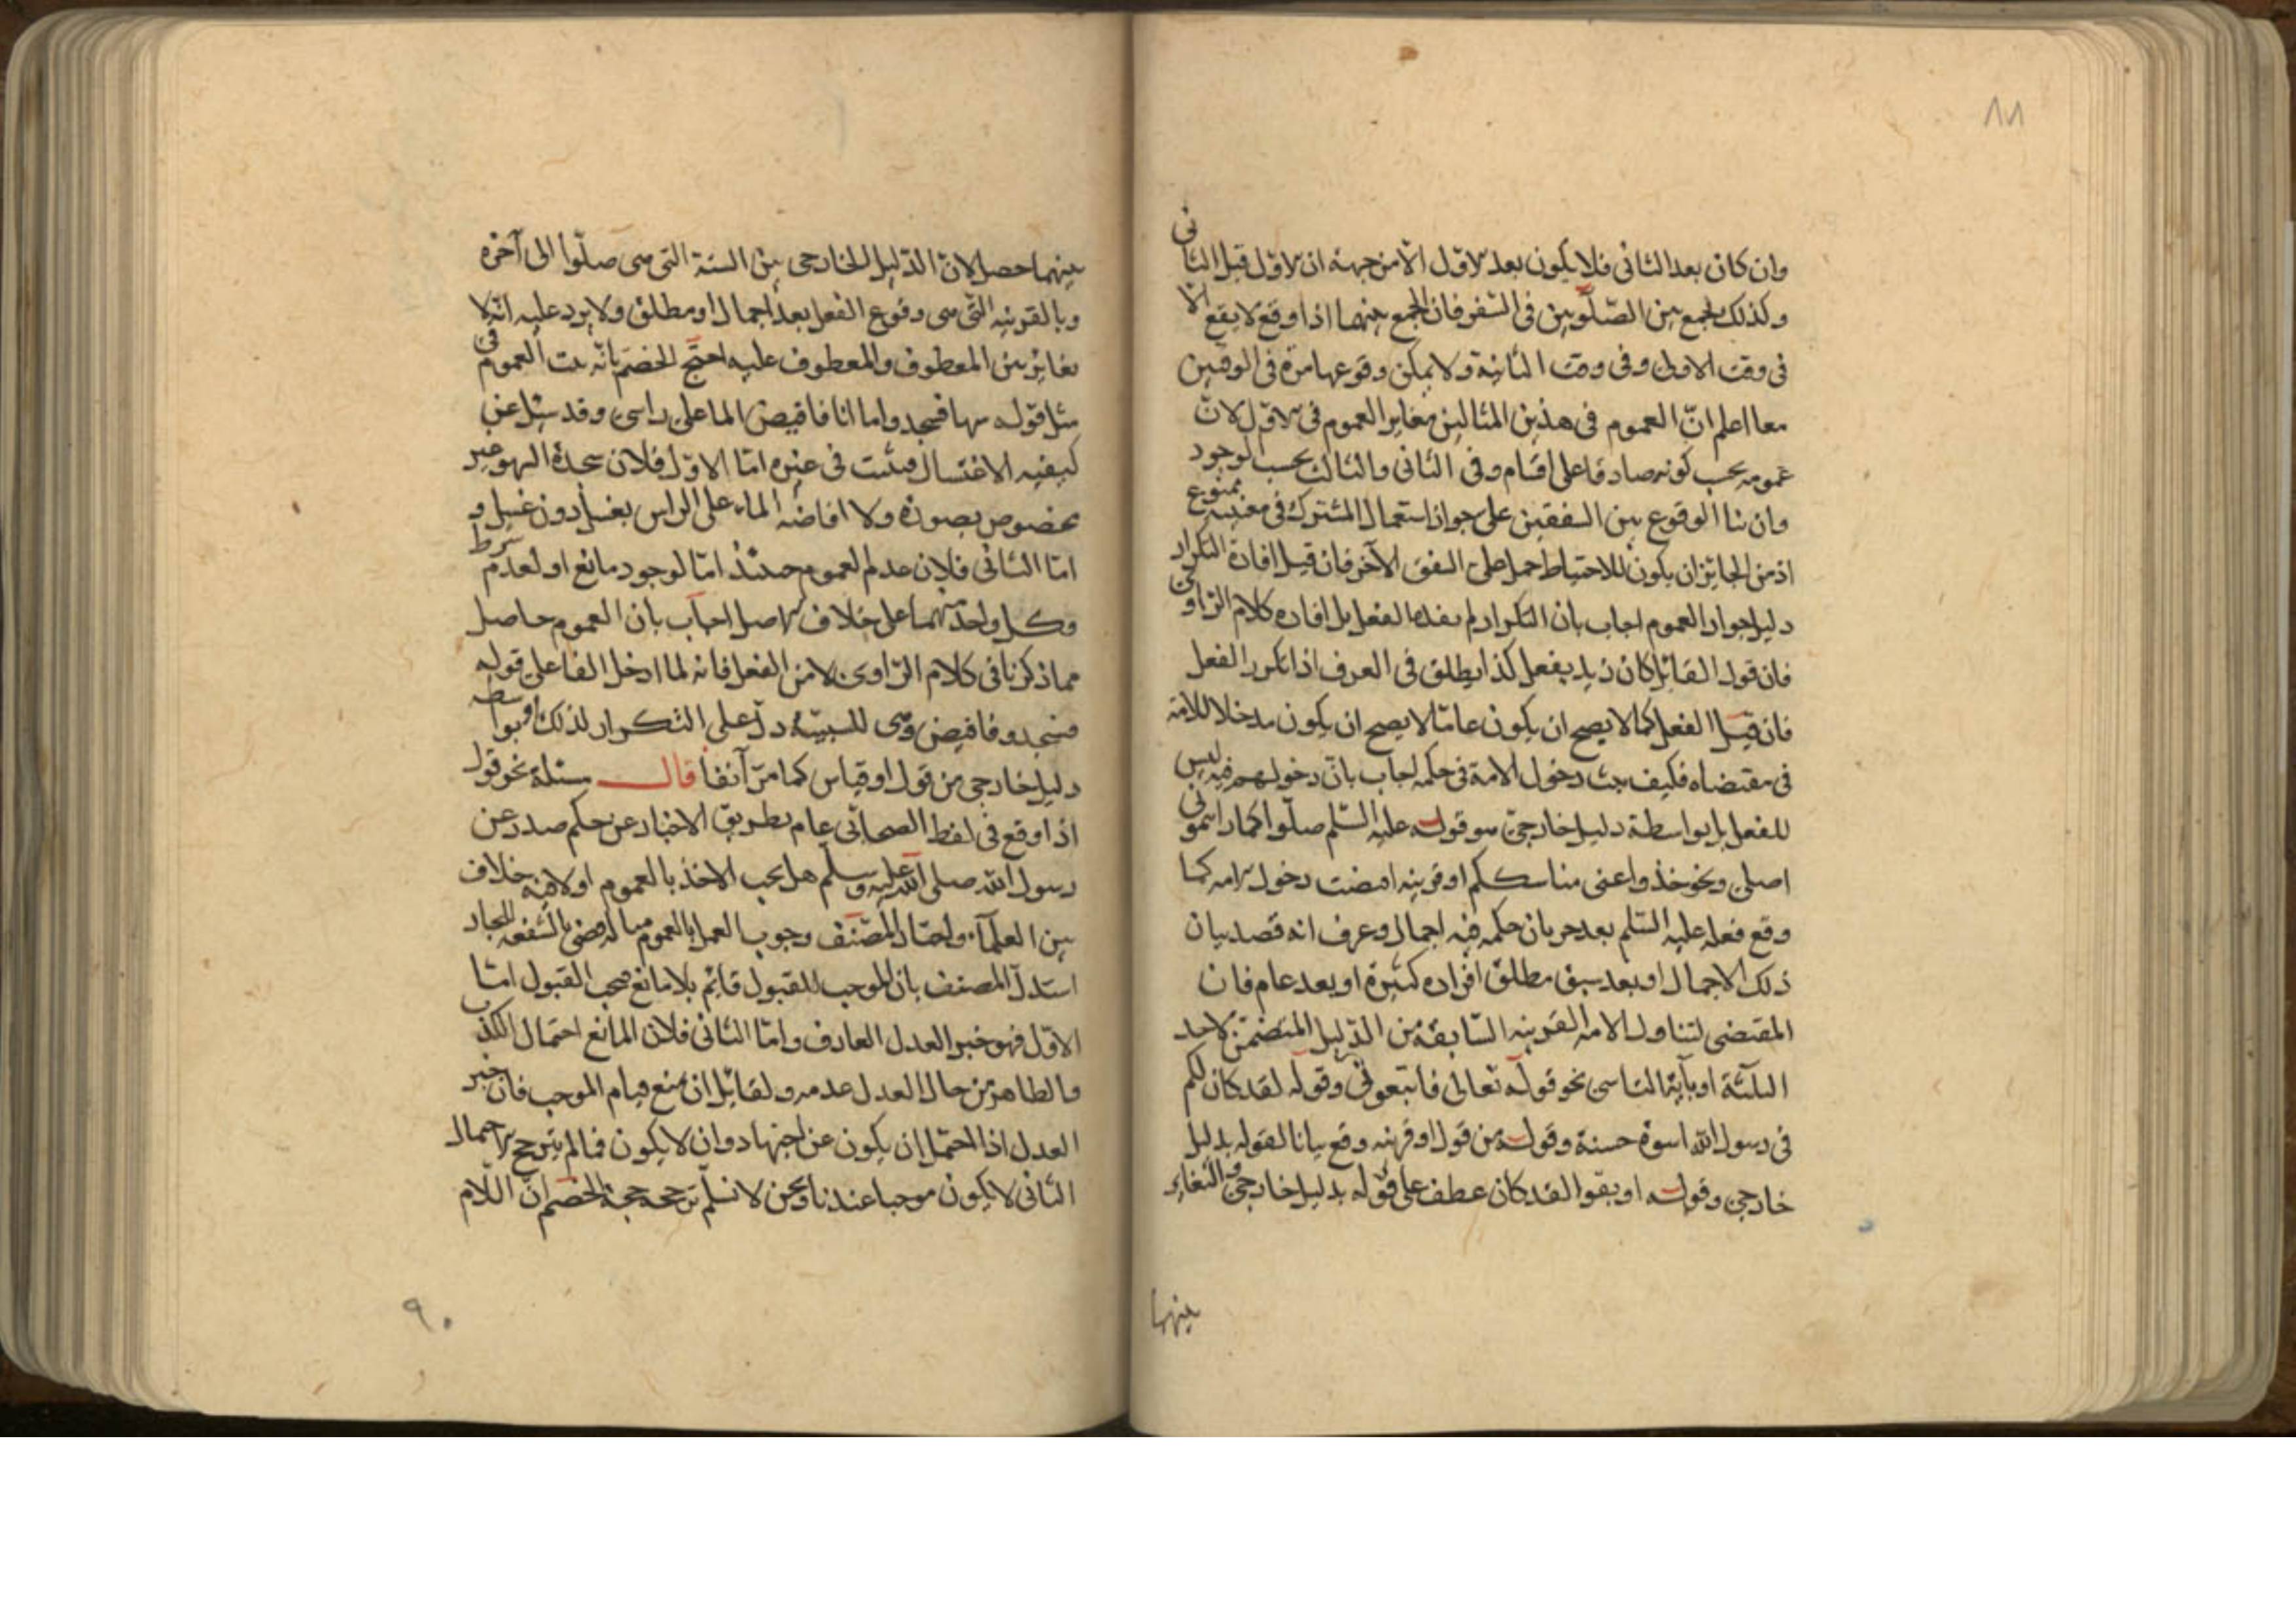 ٨٨
وان كان بعد الثانى فلا يكون بعد الاول الا من جهة ان الاول قبل الثانى
وكذلك الجمع بين الصلوتين فى السفر فان الجمع بينهما اذا وقع لا يقع الا
فى وقت الاولى وفى وقت الثانية ولا يمكن وقوعها مرة فى الوقتين
معا اعلم انّ العموم فى هذين المثالين مغاير العموم فى الاول لانّ
عمومه بحسب كونه صادقا على اقسام وفى الثانى والثالث بحسب الوجود
وان بنا الوقوع بين الشفقين على جواز استعمال المشترك فى معنييه ممنوع
اذ من الجائز ان يكون للاحتياط حمل على الشفق الآخر فان قيل افادة التكرار
دليل جواز العموم اجاب بان التكرار لم يفده الفعل بل افاده كلام الراوى
فان قول القائل كان زيد يفعل كذا يطلق فى العرف اذا تكرر الفعل
فان قيل الفعل كما لا يصح ان يكون عامّا لا يصح ان يكون مدخلا للامة
فى مقتضاه فكيف يثبت دخول الامة فى حكمه اجاب بانّ دخولهم فيه ليس
للفعل بل بواسطة دليل خارجى هو قوله عليه السّلم صلّوا كما رايتمونى
اصلى ونحو خذوا عنى مناسككم او قرينه اقتضت دخول الامة كما
وقع فعله عليه السّلم بعد جريان حكم فيه اجمال وعرف انه قصد بيان
ذلك الاجمال او بعد سبق مطلق افراده كثيرة او بعد عام فان
المقتضى لتناول الامة القرينه السّابقة من الدّليل المتضمّن لاحد
الثلثة او بآية التاسى نحو قوله تعالى فاتّبعونى وقوله لقد كان لكم
فى رسول الله اسوة حسنة وقوله من قول او قرينه وقع بيانا لقوله بدليل
خارجى وقوله او بقوله لقد كان عطف على قوله بدليل خارجى والتغاير
بينهما
بينهما حصل لانّ الدّليل الخارجى بيّن السنة التى هى صلّوا الى آخره
وبالقرينه التى هى وقوع الفعل بعد اجمال او مطلق ولا يرد عليه انّه لا
تغاير بين المعطوف والمعطوف عليه احتج الخصم بانّه ثبت العموم فى
مثل قوله سها فسجد واما انا فافيض الما على راسى وقد سئل عن
كيفيه الاغتسال فيثبت فى غيره امّا الاوّل فلان سجدة السهو غير
مخصوص بصورة ولا افاضه الماء على الراس بغسل دون غسل و
امّا الثانى فلان عدم العموم حينئذ امّا لوجود مانع او لعدم شرط
وكل واحد منهما على خلاف الاصل اجاب بان العموم حاصل
مما ذكرنا فى كلام الرّاوى لا من الفعل فانه لما ادخل الفا على قوله
فسجد وفافيض وهى للسببيّة دلّ على التكرار لذلك او بواسطه
دليل خارجى من قول او قياس كما مرّ آنفا قال مسئلة نحو قول
اذا وقع فى لفظ الصحابى عام بطريق الاخبار عن حكم صدر عن
رسول الله صلى الله عليه وسلّم هل يجب الاخذ بالعموم او لا فيه خلاف
بين العلماء واختار المصنّف وجوب العمل بالعموم مثاله قضى بالشفعه للجار
استدلّ المصنف بان الموجب للقبول قائم بلا مانع فيجب القبول امّا
الاوّل فهو خبر العدل العارف وامّا الثانى فلان المانع احتمال الكذب
والظاهر من حال العدل عدمه ولقائل ان يمنع قيام الموجب فان خبر
العدل اذا احتمل ان يكون عن اجتهاد وان لا يكون فما لم يترجح الاحتمال
الثانى لا يكون موجبا عندنا ونحن لا نسلّم ترجحه حجة الخصم انّ اللّام
٩٠